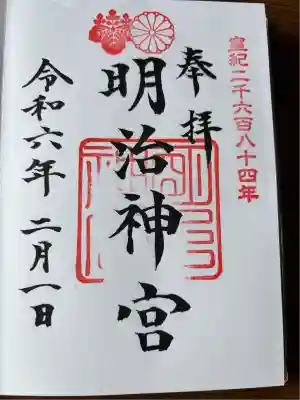 皇紀二千六百八十四年
奉拝
明治神宮
令和六年 二月一日